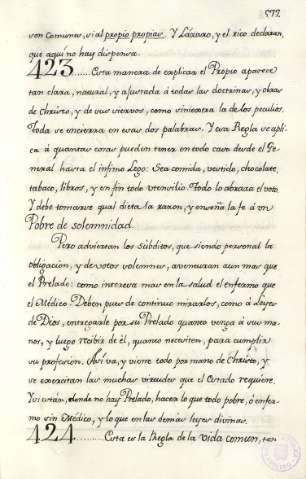 572
son Comunes, si al propio propias. Y Lázaro, y el rico declaran,
que aquí no hay dispensa.
423.....Esta manera de explicar el Propio aparece
tan clara, natural, y ajustada á todas las doctrinas, y obras
de Christo, y de sus siervos, como siniestra la de los peculios.
Toda se encierra en esas dos palabras. Y esa Regla se apli-
ca á quantas cosas pueden tener en todo caso desde el Ge-
neral hasta el infimo Lego: Sea comida, vestido, chocolate,
tabaco, libros, y en fin todo utensilio. Todo lo abraza el voto
Y debe tomarse qual dicta la razon, y enseña la fe á un
Pobre de solemnidad.
Pero adviertan los Súbditos, que siendo personal la
obligacion, y de votos solemnes, aventuran aun mas que
el Prelado: como interesa mas en la salud el enfermo que
el Médico. Deben pues de continuo mirarlos, como á Leyes
de Dios, entregarle por su Prelado quanto venga á sus ma-
nos, y luego recibir de él, quanto necesiten, para cumplir
su profesion. Así va, y viene todo por mano de Christo, y
se exercitan las muchas virtudes que el Estado requiere.
Y si están, donde no hay Prelado, hacer lo que todo pobre, ó enfer-
mo sin Médico, y lo que en las demas leyes divinas.
424.....Esta es la Regla de la vida comun, tan